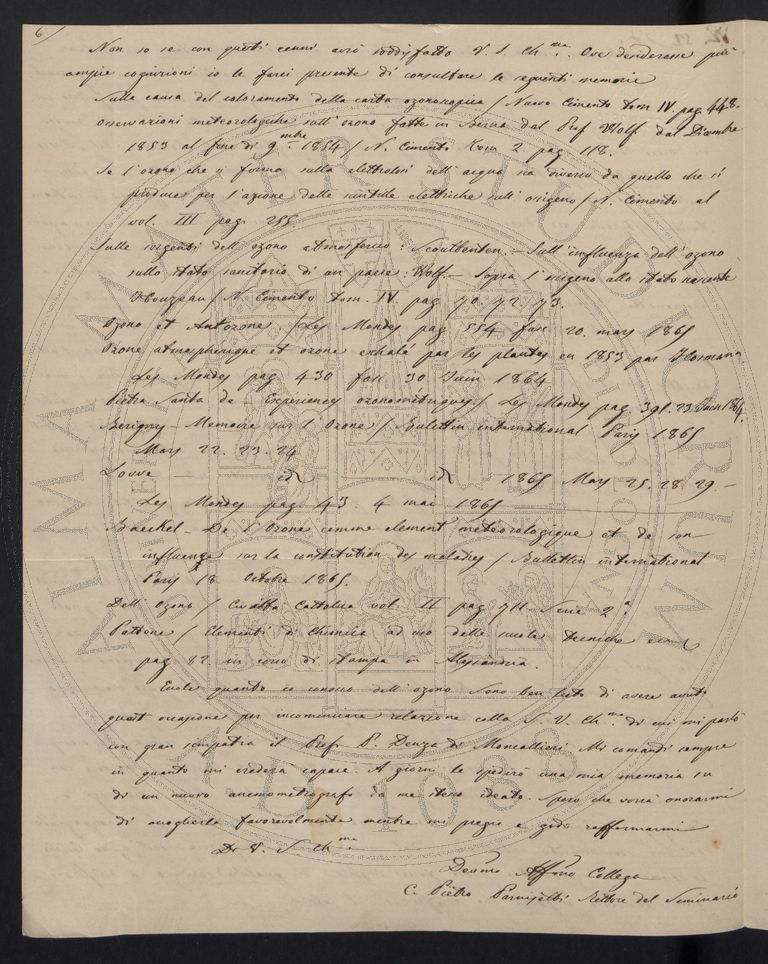 6
Non so se con questi cenni avrò soddisfatto V. S. Ch.ma. Ove desiderasse più
ampie cognizioni io le farei presente di consultare le seguenti memorie
Sulla causa del coloramento della carta ozonoscopica / Nuovo Cimento tom IV. pag 448.
Osservazioni meteorologiche sull'ozono fatte in Berna dal Prof Wolf dal Dicembre
1853 al fine di 9mbre 1854 / N. Cimento tom 2. pag 118.
Se l'ozono che si forma sulla elettrolosi dell'acqua sia diverso da quello che si
produce per l'azione delle scintille elettriche sull'ossigeno / N. Cimento al
vol. III pag. 255
Sulle sorgenti dell'ozono atmosferico: Scoutbenten. - Sull'influenza dell'ozono
sullo stato sanitario di un paese: Wolf. - Sopra l'ossigeno allo stato nascente
Houzeau / N. Cimento tom. IV. pag 70. 72. 73.
Ozono et Antozone. / Les Mondes pag 554 fasc. 20. mars 1865
Ozone atmospherique et ozone exhalé par les plantes en 1853 par Kosmann
Les Mondes pag 430 fasc 30 Juin 1864
Pietra Santa de - Experiences ozonométriques / Les Mondes pag. 391. 23 Juin 1864.
Berigny - Memoire sur l'Ozone / Bulletin international Paris 1865
Mars 22. 23. 24
id id 1865 Mars 25. 28. 29 -
Les Mondes pag 43. 4 mai 1865
Boeckel - De l'Ozone comme element meteorologique et de son
influence sur la constitution des maladies / Bullettin international
Paris 18 Octobre 1865.
Dell'Ozono / Civiltà Cattolica vol. II pag 711 Serie 2a
Pattone / Elementi di Chimica ad uso delle scuole Tecniche
pag 82. in corso di stampa in Alessandria.
Eccole quanto io conosco dell'ozono. Sono ben lieto di avere avuto
quest'occasione per incominciare relazione colla S. V. Ch.ma di cui mi parlò
con gran simpatia il Prof. P. Denza di Moncallieri. Mi comandi sempre
in quanto mi crederà capace. A giorni le spedirò una mia memoria su
di un nuovo anemometrografo da me stesso ideato. Spero che vorrà onorarmi
di accoglierla favorevolmente mentre mi pregio e godo raffermarmi
Di V. S. Ch.ma
Devmo Affmo Collega
C. Pietro Parnisetti Rettore del Seminario